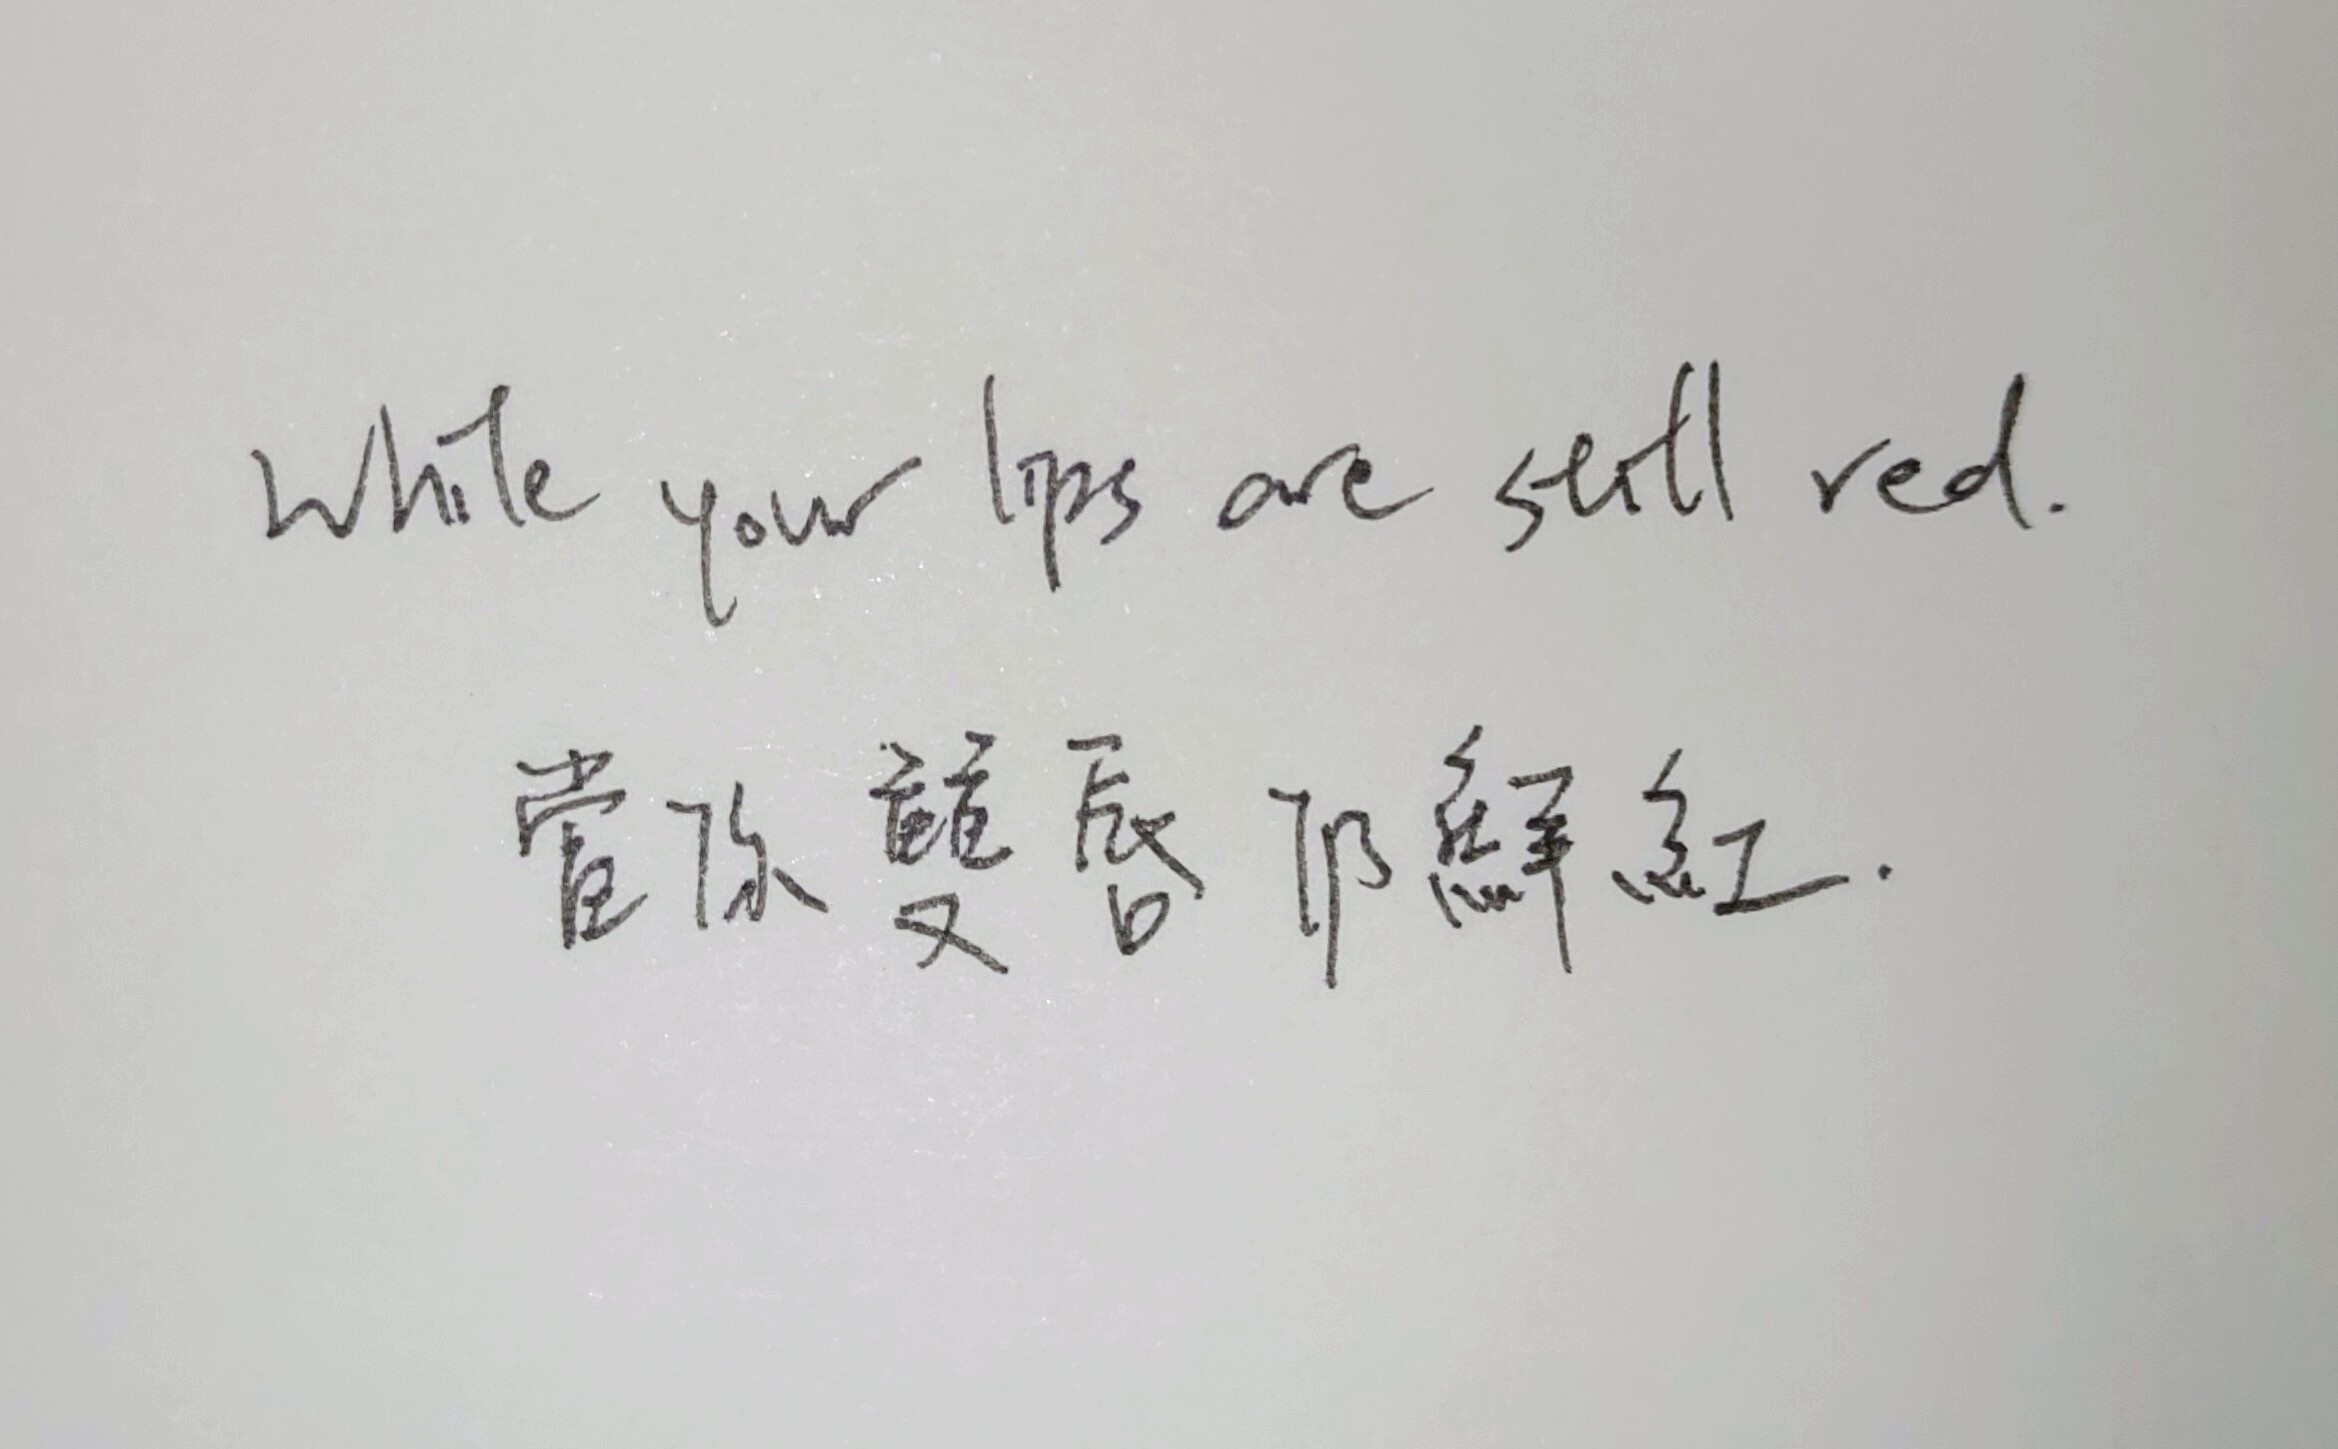 While your lips are still red.
當你雙唇仍鮮紅.